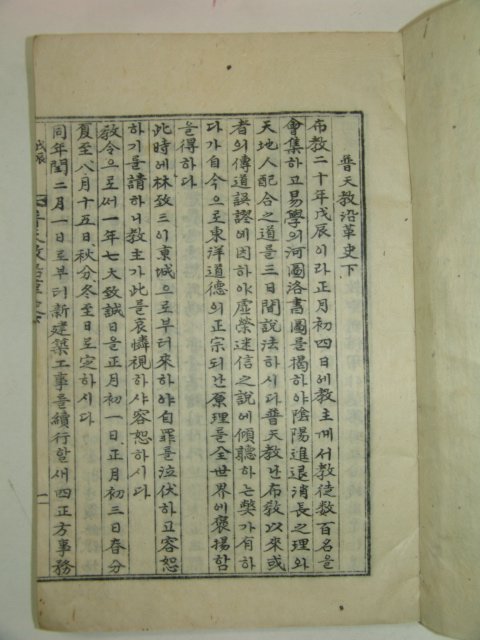 普天敎沿革史下
布敎二十年戊辰이라正月初四日에敎主게서敎徒数百名을
會集하고易學의河圖洛書圖를揭하야陰陽進退消長之理와
天地人配合之道를三日間說法하시다普天敎난布敎以來或
者의傳道誤謬에因하야虛榮迷信之說에傾聽하는弊가有하
다가自今으로東洋道德의正宗되난原理를全世界에褒揚함
을得하다
此時에林致三이京城으로부터來하야自罪를泣伏하고容恕
하기를請하니敎主가此를哀憐視하샤容恕하시다
敎令으로써一年七大致誠日을正月初一日、正月初三日春分
夏至八月十五日、秋分冬至日로定하시다
同年閏二月一日로부터新建築工事를續行할새四正方事務
一